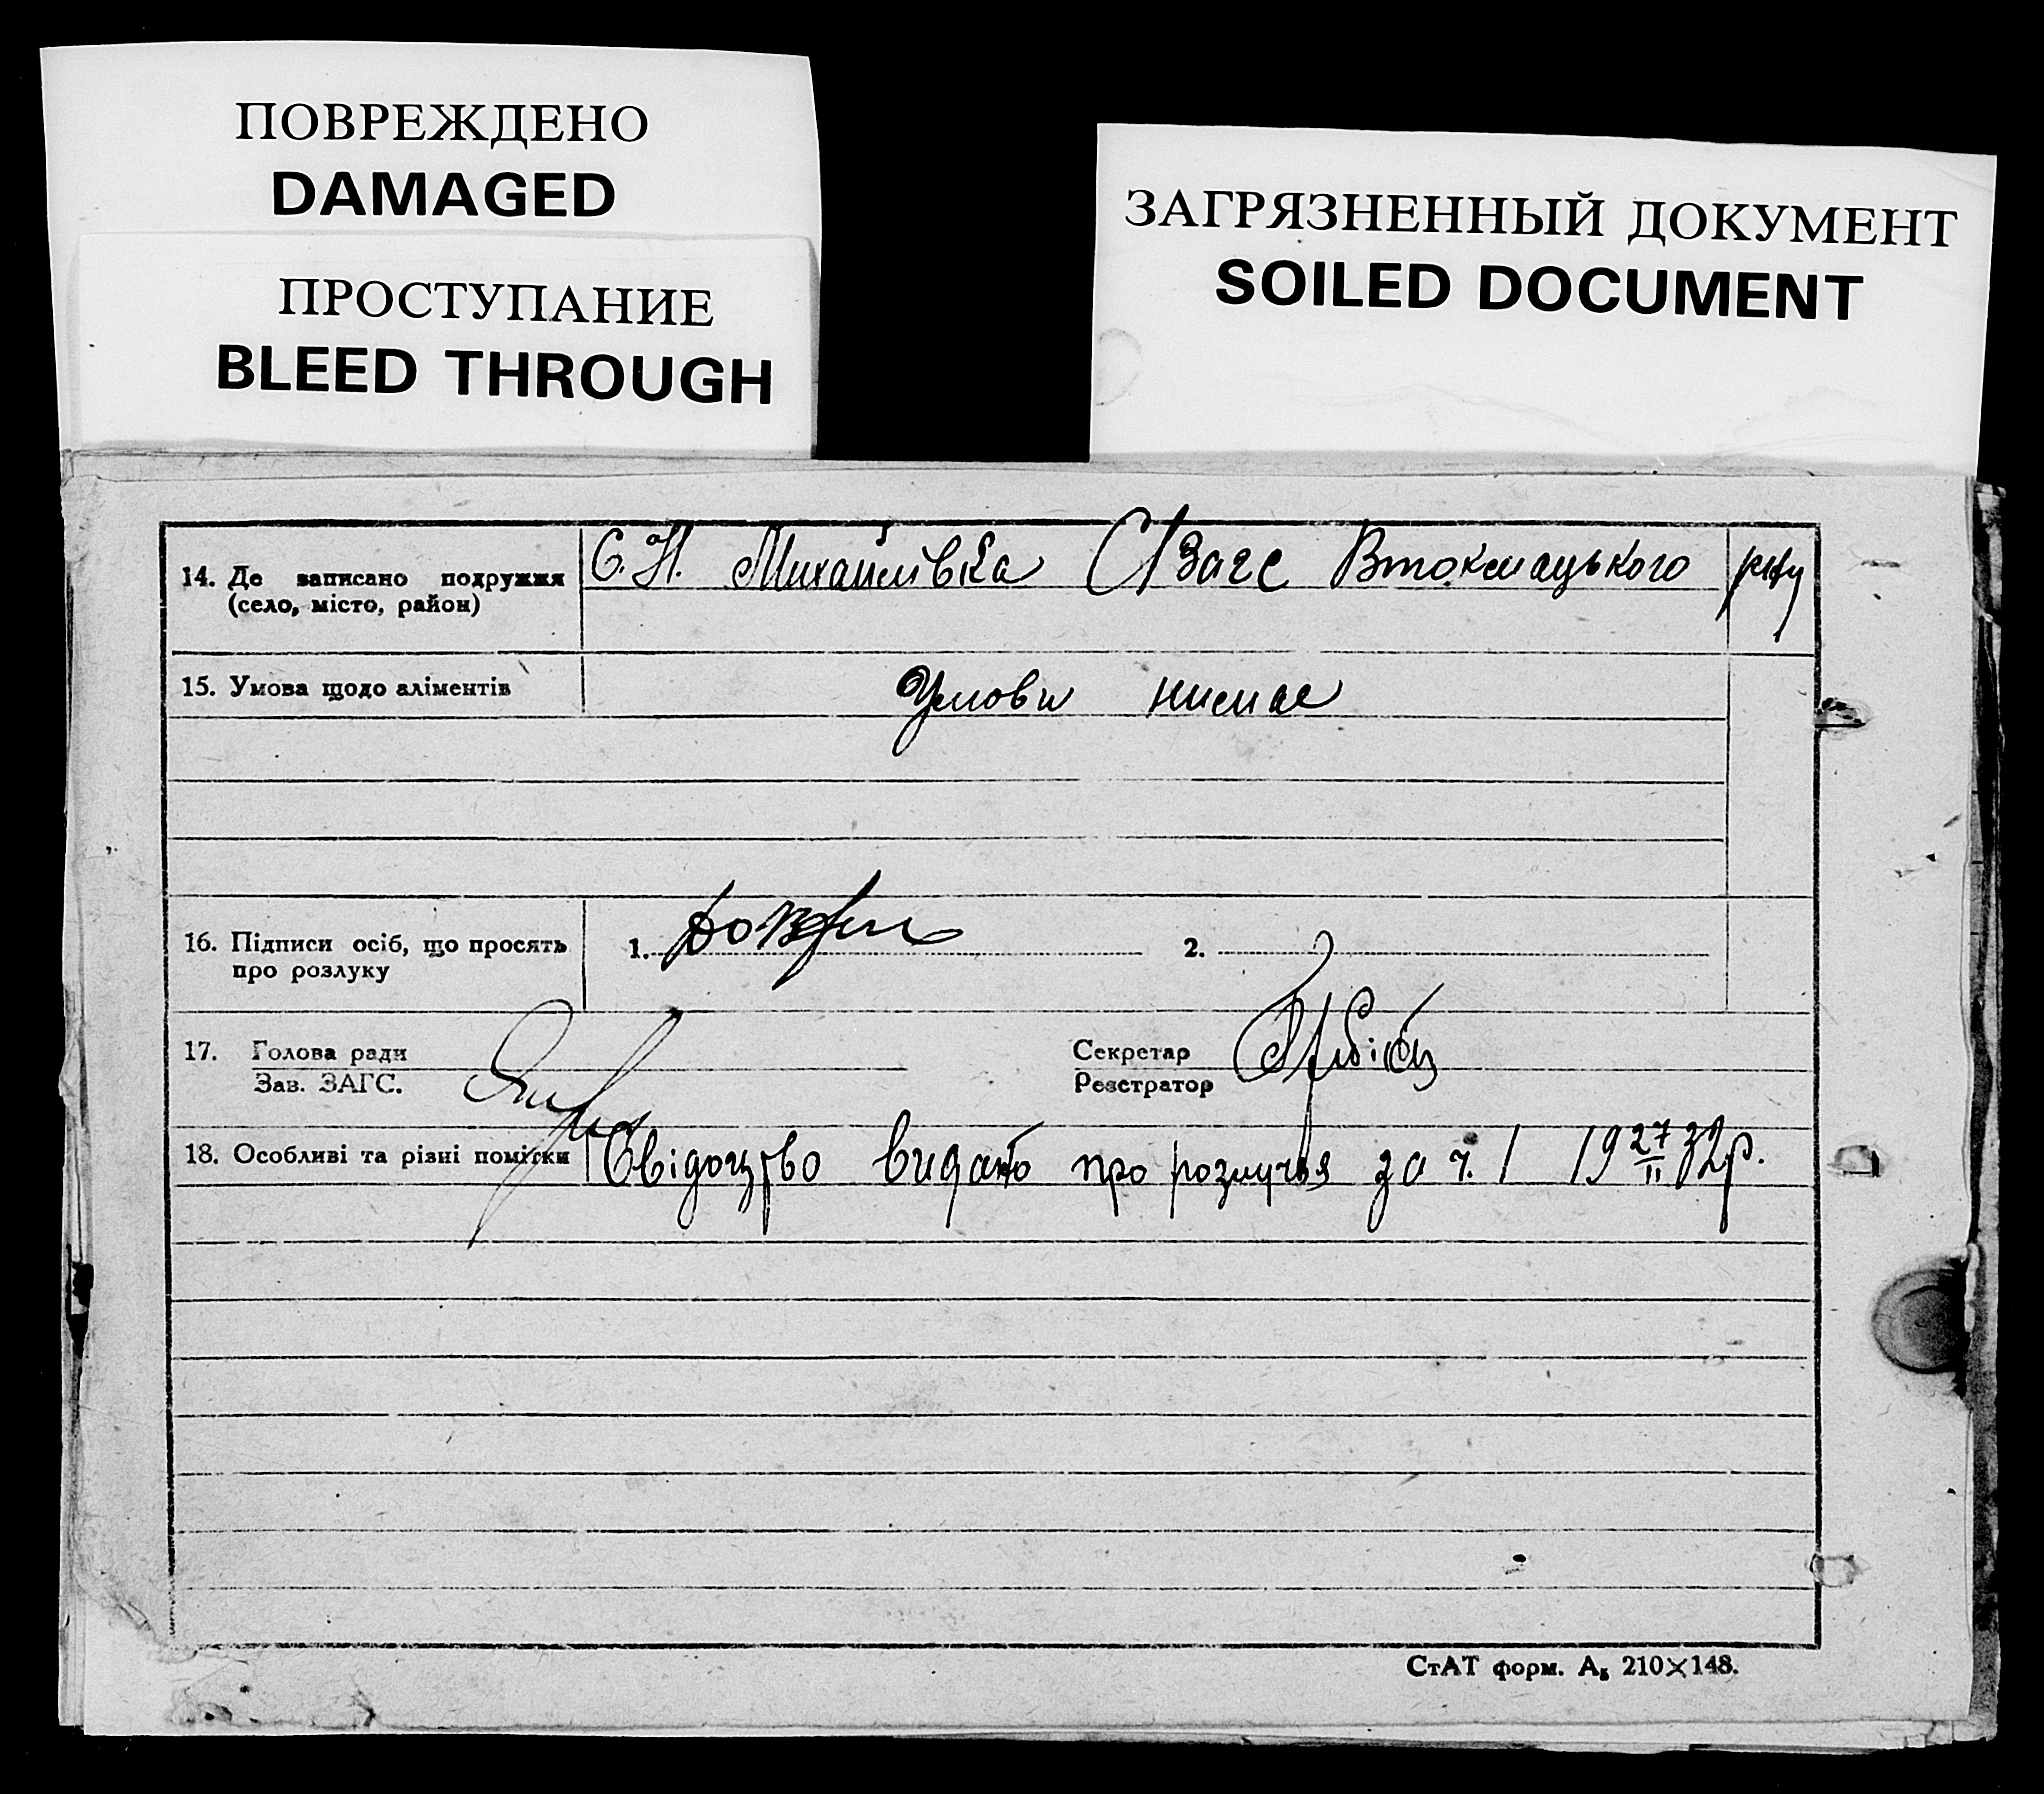 ПОВРЕЖДЕНО
DAMAGED
ПРОСТУПАНИЕ
BLEED THROUGH
ЗАГРЯЗНЕННЫЙ ДОКУМЕНТ
SOILED DOCUMENT
14. Де записано подружжя
(село, місто, район)
С. Н. Михайлівка С/Загс Втокмацького р-ну
15. Умова щодо аліментів
Умови нимае
16. Підписи осіб, що просять
про розлуку
1.
2.
17. Голова ради
Зав. ЗАГС.
Секретар
Реєстратор
18. Особливі та різні помітки
Свідоцтво видано про розлучья за ч. 1 19 27/II 32р.
СтАТ форм. А₅ 210×148.